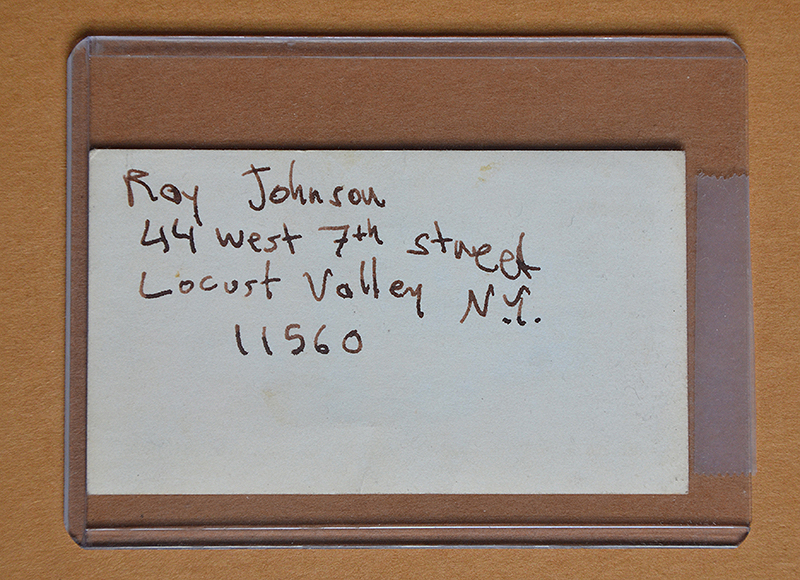 Ray Johnson
44 west 7th street
Locust Valley N.Y.
11560